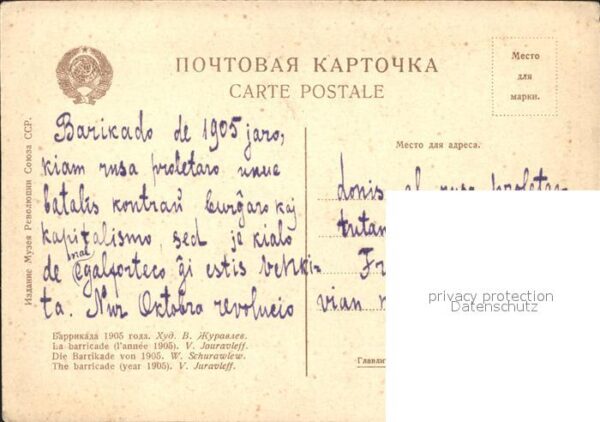 ПОЧТОВАЯ КАРТОЧКА
CARTE POSTALE
Место
для
марки.
Издание Музея Революции Союза ССР.
Barikado de 1905 jaro,
kiam rusa proletaro unue
batalis kontraŭ burĝaro kaj
kapitalismo, sed je kialo
de malegalforteco ĝi estis venki-
ta. Nur Oktobra revolucio
Место для адреса.
donis al rusa proletar
tutan
Fr
vian
privacy protection
Datenschutz
Баррикада 1905 года. Худ. В. Журавлев.
La barricade (l'année 1905). V. Jouravleff.
Die Barrikade von 1905. W. Schurawlew.
The barricade (year 1905). V. Juravleff.
Главли